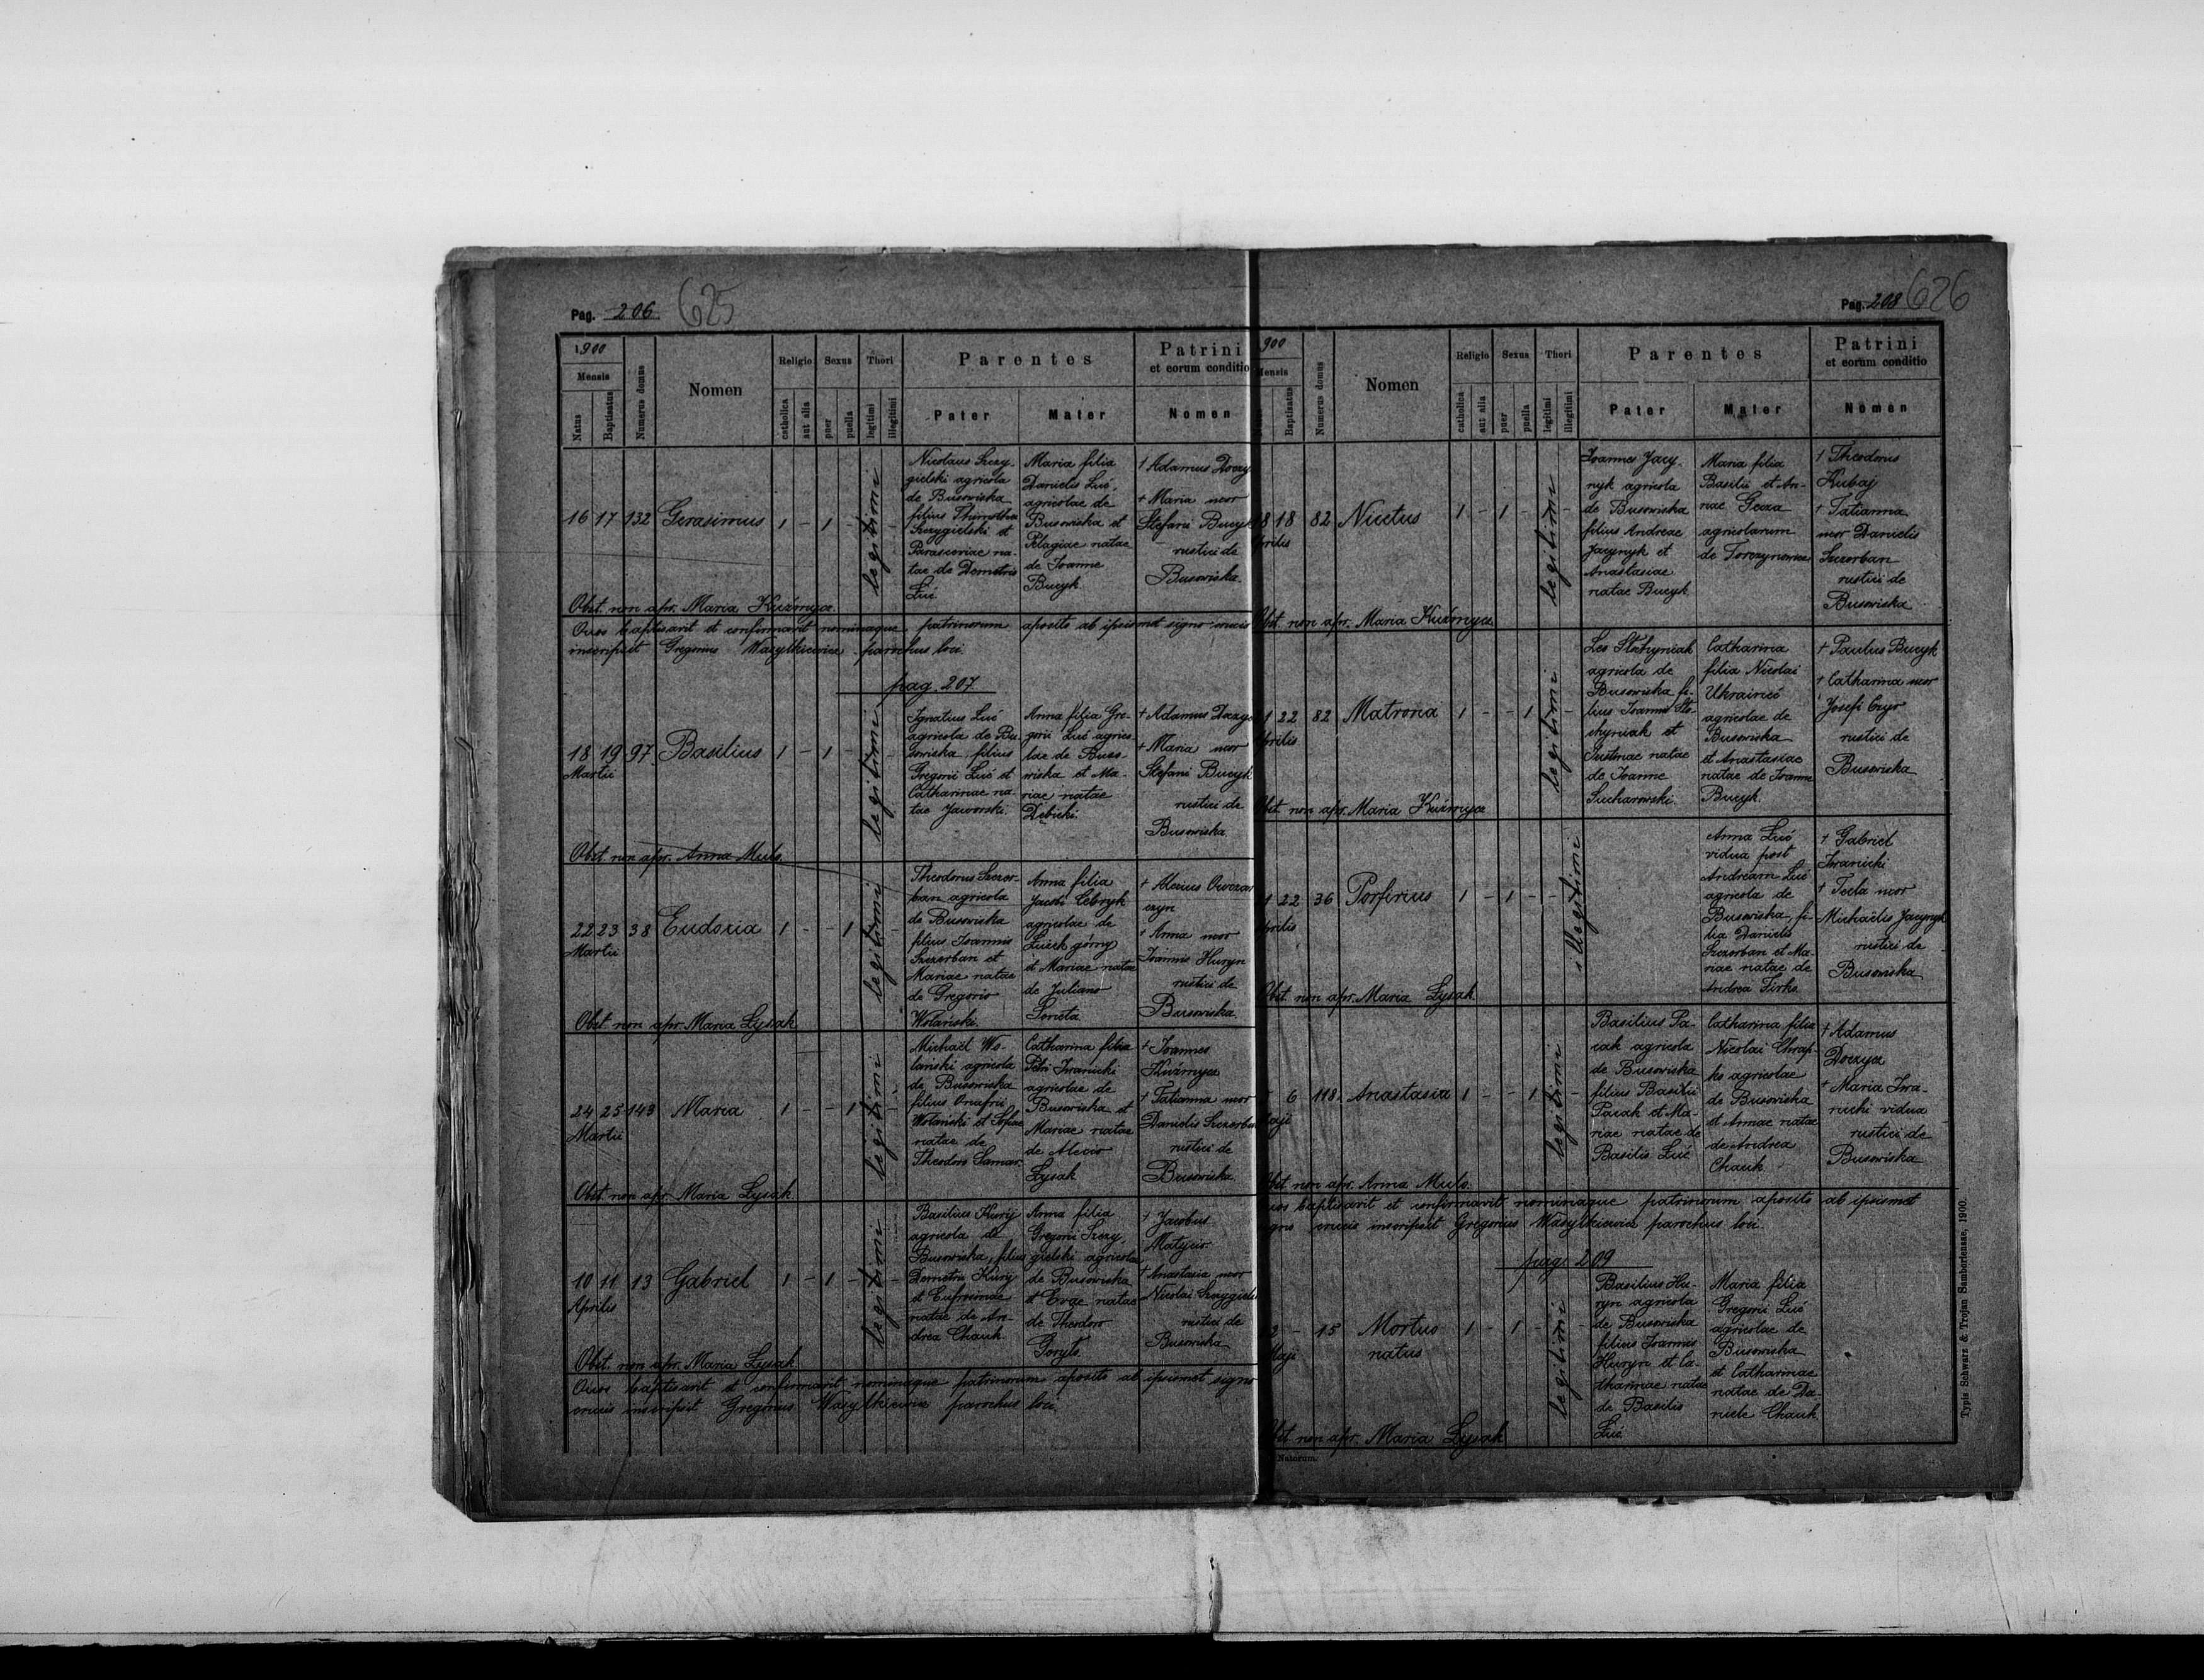 Pag. 206 625
1900
Mensis
Natus
Baptisatus
Numerus domus
Nomen
Religio
catholica
aut alia
Sexus
puer
puella
Thori
legitimi
illegitimi
Parentes
Pater
Mater
Patrini
et eorum conditio
Nomen
16 17 132 Gerasimus 1 - 1 -
legitimi
Nicolaus Szczy-
gielski agricola
de Busowiska
filius Thimothei
Szczygielski et
Parasceviae na-
tae de Demetrio
Łuć
Maria filia
Danielis Łuć,
agricolae de
Busowiska et
Pelagiae natae
de Joanne
Bucyk
† Adamus Doczy
† Maria uxor
Stefani Bucyk
rustici de
Busowiska
Obst. non apr. Maria Kuźmycz
Quos baptisavit et confirmavit nominaque patrinorum aposito ab ipsismet signo crucis
inscripsit Gregorius Wasylkiewicz parochus loci.
pag. 207
18 19 97 Basilius 1 - 1 -
Martii
legitimi
Ignatius Łuć
agricola de Bu-
sowiska filius
Gregorii Łuć et
Catharinae na-
tae Jaworski.
Anna filia Gre-
gorii Łuć agrico-
lae de Buso-
wiska et Ma-
riae natae
Dębicki.
† Adamus Doczy
† Maria uxor
Stefani Bucyk
rustici de
Busowiska
Obst. non apr. Anna Muls.
22 23 38 Eudoxia 1 - - 1
Martii
legitimi
Theodorus Szczer-
ban agricola
de Busowiska
filius Joannis
Szczerban et
Mariae natae
de Gregorio
Wolański.
Anna filia
Jacobi Cebryk
agricolae de
Łużek górny
et Mariae natae
de Juliano
Soneta
† Alexius Owczar
czyn
† Anna uxor
Joannis Huryn
rustici de
Busowiska
Obst. non apr. Maria Łysak
24 25 143 Maria 1 - - 1
Martii
legitimi
Michael Wo-
lański agricola
de Busowiska
filius Onufrii
Wolański et Sofiae
natae de
Theodoro Samar.
Catharina filia
Petri Iwanicki
agricolae de
Busowiska et
Mariae natae
de Alexio
Łysak
† Joannes
Kuźmycz
† Tatianna uxor
Danielis Szczerban
rustici de
Busowiska
Obst. non apr. Maria Łysak
10 11 13 Gabriel 1 - 1 -
Aprilis
legitimi
Basilius Kurij
agricola de
Busowiska, filius
Demetrii Kurij
et Eufrosinae
natae de An-
drea Chauk
Anna filia
Gregorii Szczy-
gielski agricolae
de Busowiska
et Evae natae
de Theodoro
Goryło.
† Jacobus
Matycio
† Anastasia uxor
Nicolai Szczygielski
rustici de
Busowiska
Obst. non apr. Maria Łysak
Quos baptisavit et confirmavit nominaque patrinorum aposito ab ipsismet signo
crucis inscripsit Gregorius Wasylkiewicz parochus loci.
Pag. 208 626
900
Mensis
Baptisatus
Numerus domus
Nomen
Religio
catholica
aut alia
Sexus
puer
puella
Thori
legitimi
illegitimi
Parentes
Pater
Mater
Patrini
et eorum conditio
Nomen
18 18 82 Nicetus 1 - 1 - -
prilis
legitimi
Joannes Jacy-
nyk agricola
de Busowiska
filius Andreae
Jacynyk et
Anastasiae
natae Bucyk
Maria filia
Basilii et An-
nae Geza
agricolarum
de Torczynowice
† Theodorus
Kubaj
† Tatianna
uxor Danielis
Szczerban
rustici de
Busowiska
Obst. non apr. Maria Kuźmycz
1 22 82 Matrona 1 - - 1 -
prilis
legitimi
Leo Stchyniak
agricola de
Busowiska fi-
lius Joannis Ste-
chyniak et
Justinae natae
de Joanne
Sucharowski.
Catharina
filia Nicolai
Ukrainec
agricolae de
Busowiska
et Anastasiae
natae de Joanne
Bucyk.
† Paulus Bucyk
† Catharina uxor
Josefi Czyr
rustici de
Busowiska
Obst. non apr. Maria Kuźmycz
1 22 36 Porfirius 1 - 1 - - 1
prilis
illegitimi
Anna Łuć
vidua post
Andream Łuć
agricola de
Busowiska, fi-
lia Danielis
Szczerban et Ma-
riae natae de
Andrea Sirko.
† Gabriel
Iwanicki
† Tecla uxor
Michaelis Jacynyk
rustici de
Busowiska
Obst. non apr. Maria Łysak
6 118. Anastasia 1 - - 1 -
Maji
legitimi
Basilius Pa-
cak agricola
de Busowiska
filius Basilii
Pacak et Ma-
riae natae de
Basilio Łuć
Catharina filia
Nicolai Chrap-
ko agricolae
de Busowiska
et Annae natae
de Andrea
Chauk.
† Adamus
Doczycz
† Maria Iwa-
nicki vidua
rustici de
Busowiska
Obst. non apr. Anna Muls.
Quos baptisavit et confirmavit nominaque patrinorum aposito ab ipsismet
signo crucis inscripsit Gregorius Wasylkiewicz parochus loci.
pag. 209
2 - 15 Mortuo 1 - 1 - -
Maji natus
legitimi
Basilius Hu-
ryn agricola
de Busowiska
filius Joannis
Huryn et Ca-
tharinae natae
de Basilio
Łuć.
Maria filia
Gregorii Łuć
agricolae de
Busowiska
et Catharinae
natae de Da-
niele Chauk
Obst. non apr. Maria Łysak
Natorum.
Typis Schwarz & Trojan Samboriensae, 1900.